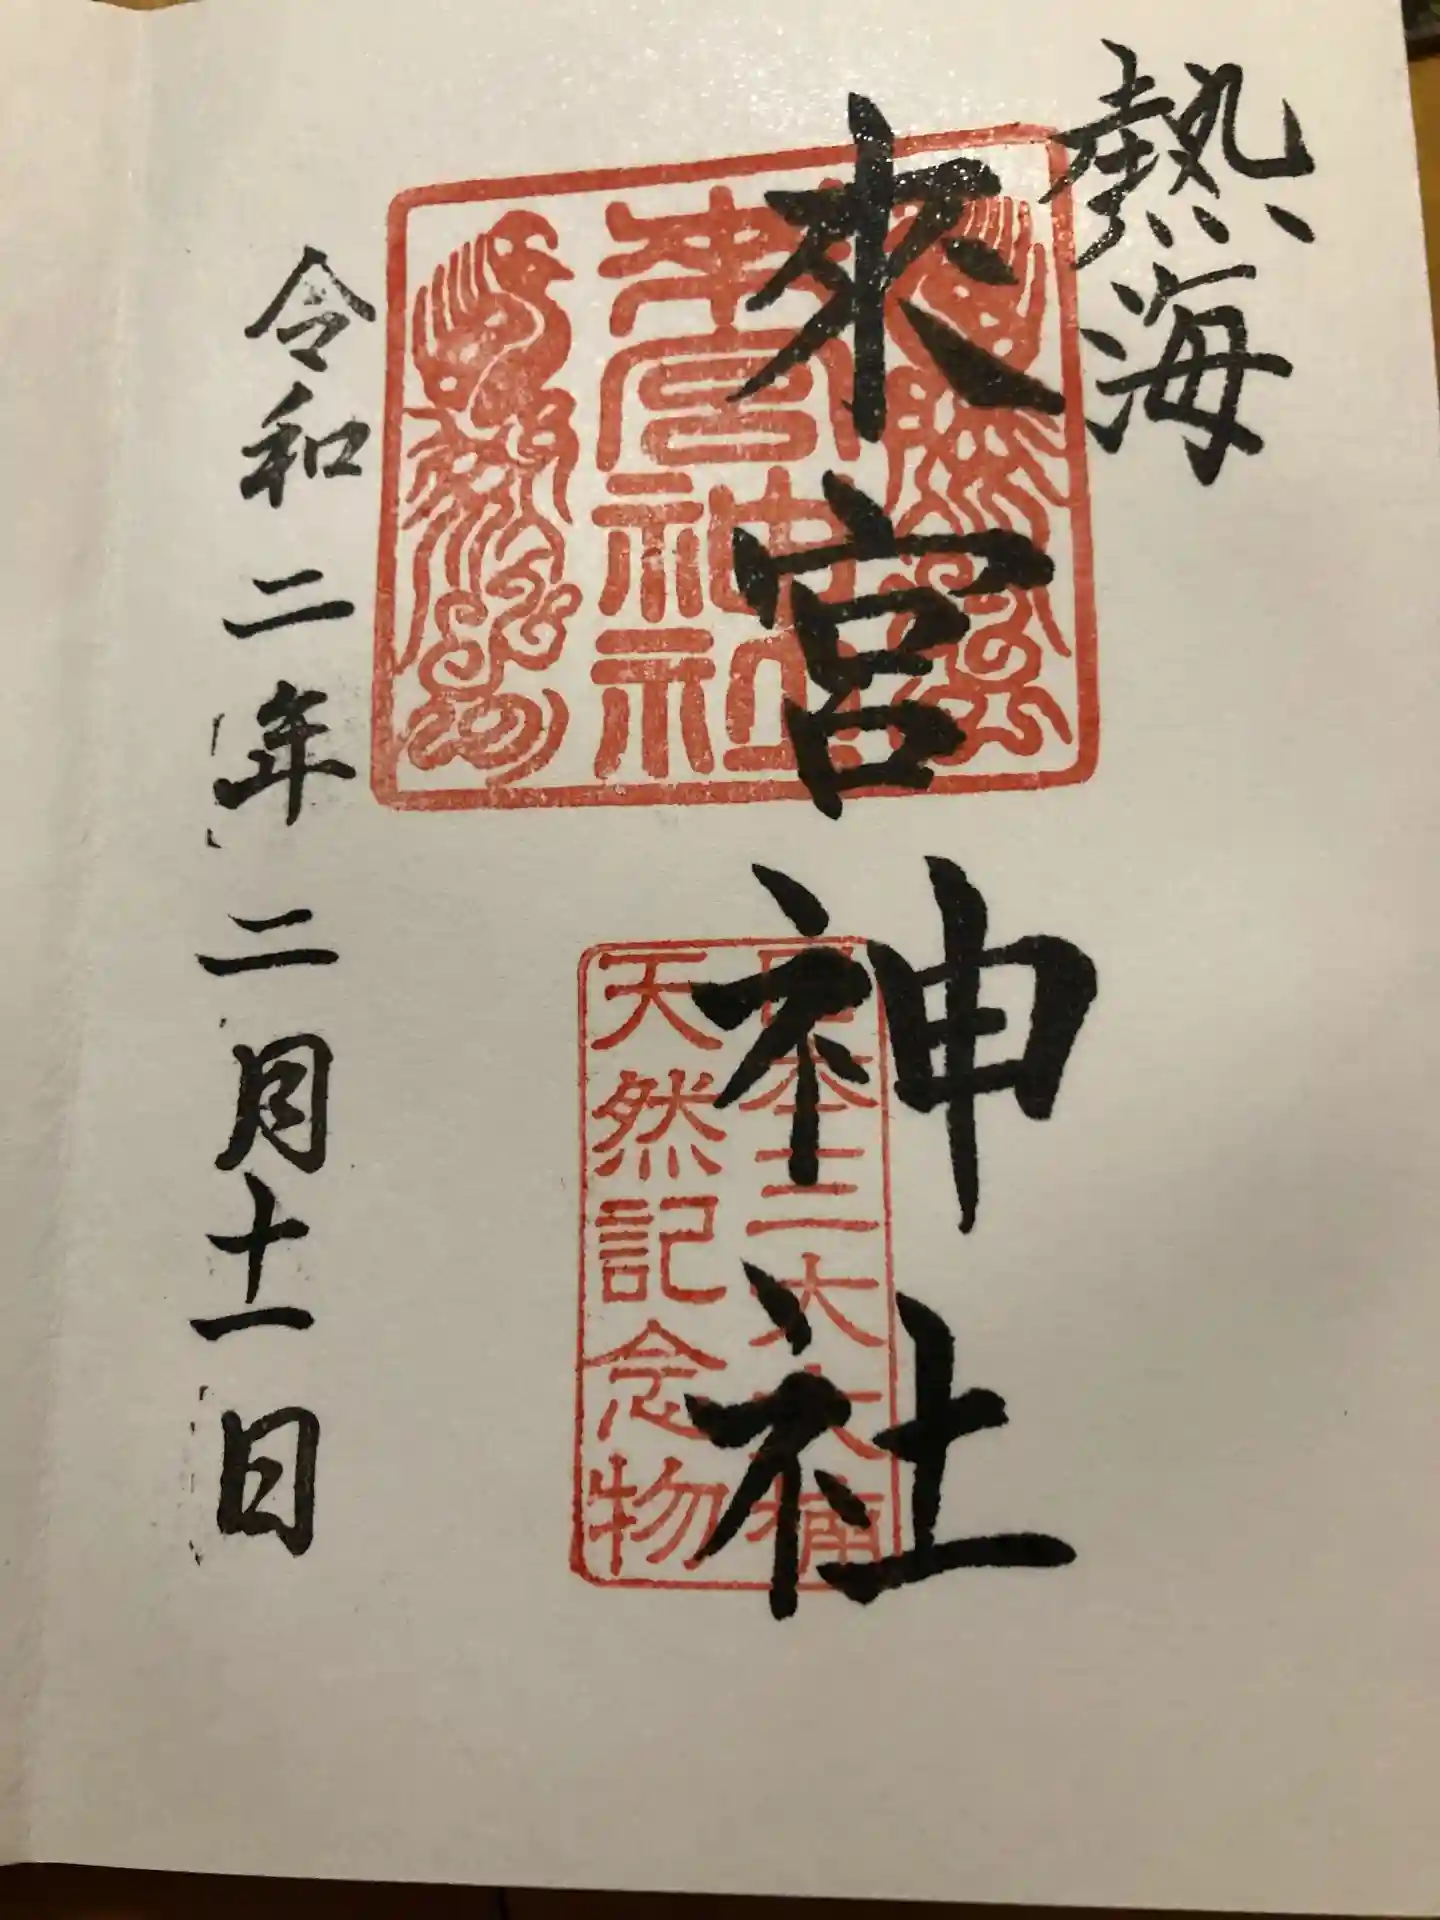 熱海
來宮神社
來宮神社
日本三大大楠
天然記念物
令和二年二月十一日